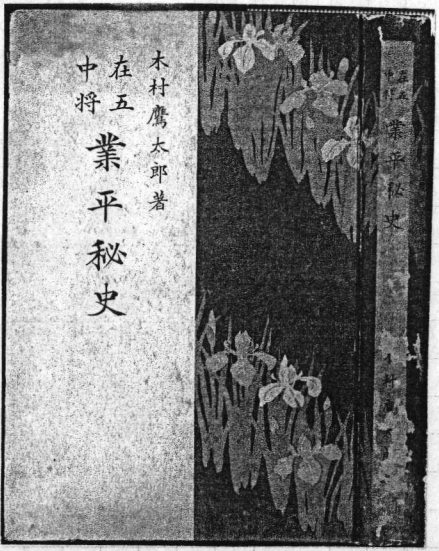 木村鷹太郎著
在五
中将
業平秘史
在五
業平秘史
木村